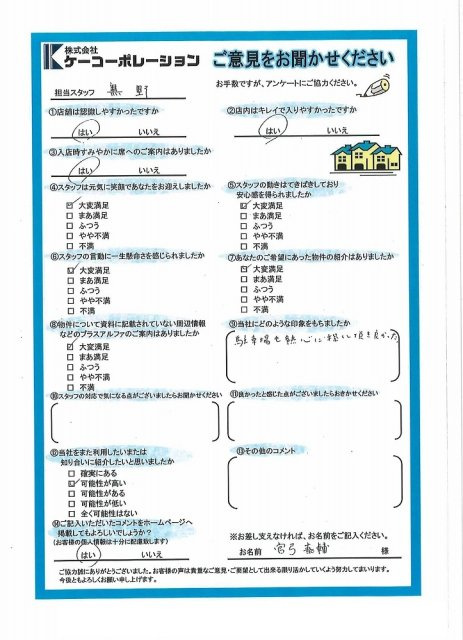 株式会社
ケーコーポレーション
ご意見をお聞かせください
担当スタッフ 熊野
お手数ですが、アンケートにご協力ください。
①店舗は認識しやすかったですか
はい いいえ
②店内はキレイで入りやすかったですか
はい いいえ
③入店時すみやかに席へのご案内はありましたか
はい いいえ
④スタッフは元気に笑顔であなたをお迎えしましたか
大変満足
まあ満足
ふつう
やや不満
不満
⑤スタッフの動きはてきぱきしており
安心感を得られましたか
大変満足
まあ満足
ふつう
やや不満
不満
⑥スタッフの言動に一生懸命さを感じられましたか
大変満足
まあ満足
ふつう
やや不満
不満
⑦あなたのご希望にあった物件の紹介はありましたか
大変満足
まあ満足
ふつう
やや不満
不満
⑧物件について資料に記載されていない周辺情報
などのプラスアルファのご案内はありましたか
大変満足
まあ満足
ふつう
やや不満
不満
⑨当社にどのような印象をもちましたか
駐車場も熱心に探して頂き良かった
⑩スタッフの対応で気になる点がございましたらお聞かせください
⑪良かったと感じた点がございましたらおきかせください
⑫当社をまた利用したいまたは
知り合いに紹介したいと思いましたか
確実にある
可能性が高い
可能性がある
可能性が低い
全く可能性はない
⑬その他のコメント
⑭ご記入いただいたコメントをホームページへ
掲載してもよろしいでしょうか？
(お客様の個人情報は十分に配慮致します)
はい いいえ
※お差し支えなければ、お名前をご記入ください。
お名前 宮弓 嘉輔 様
ご協力誠にありがとうございました。お客様の声は貴重なご意見・ご要望として出来る限り活かしていくよう努力してまいります。
今後ともよろしくお願い申し上げます。